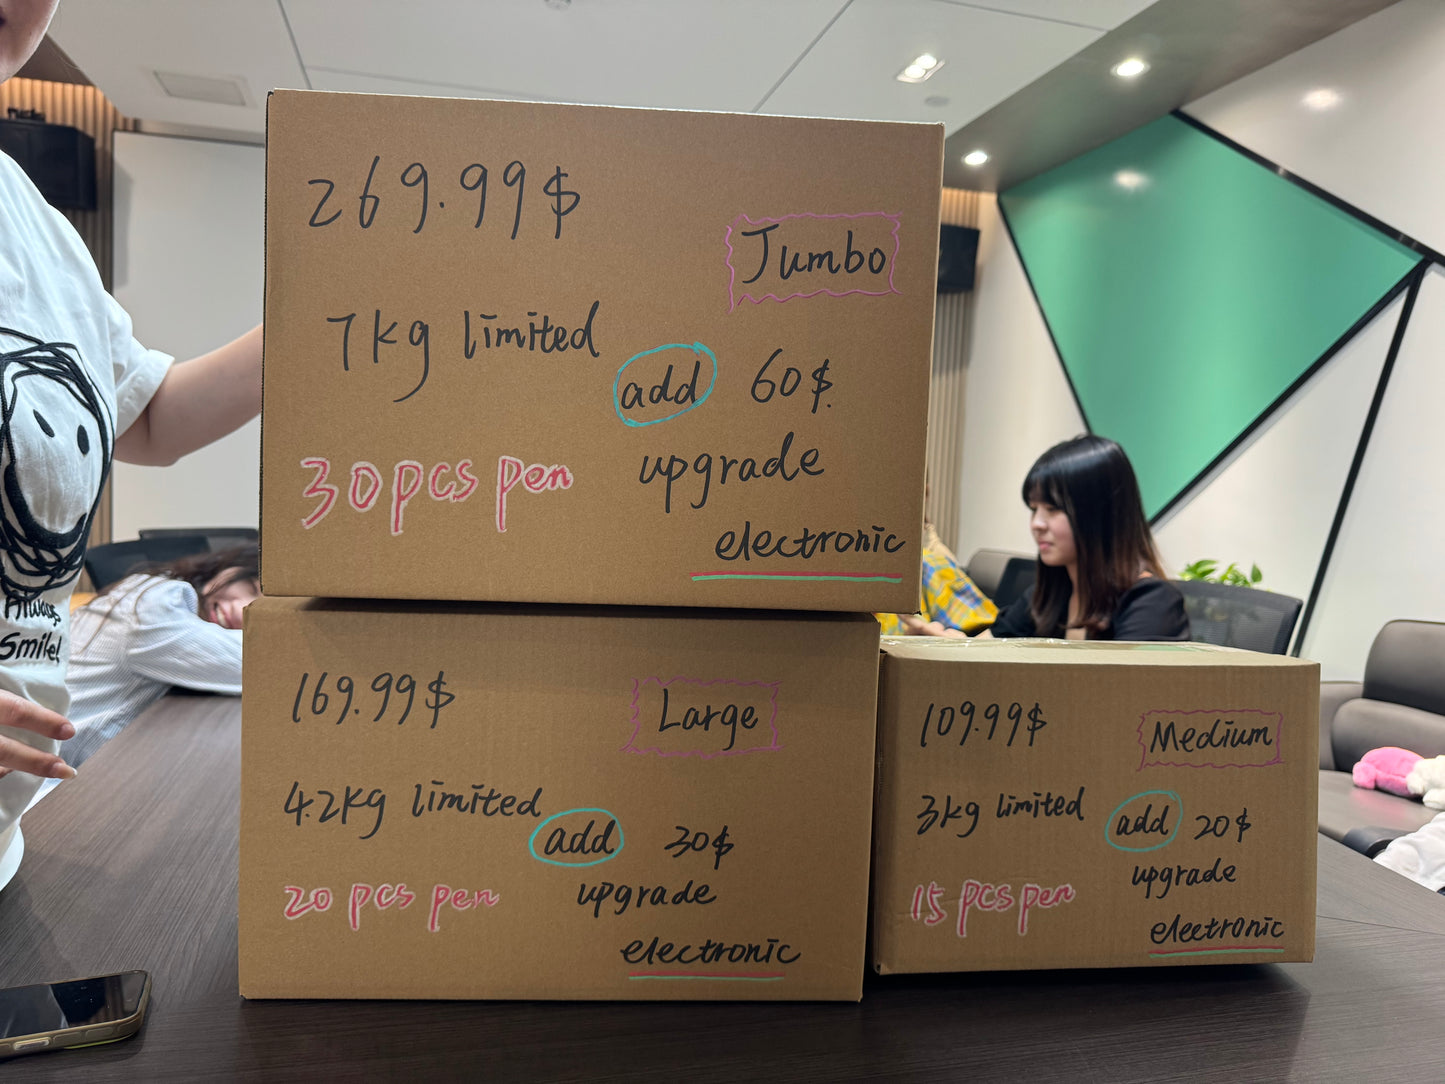 269.99$
Jumbo
7kg limited
add 60$
upgrade
30pcs pen
electronic
169.99$
Large
4.2kg limited
add 30$
upgrade
20 pcs pen
electronic
109.99$
Medium
3kg limited
add 20$
upgrade
15 pcs pen
electronic
Always
Smile!